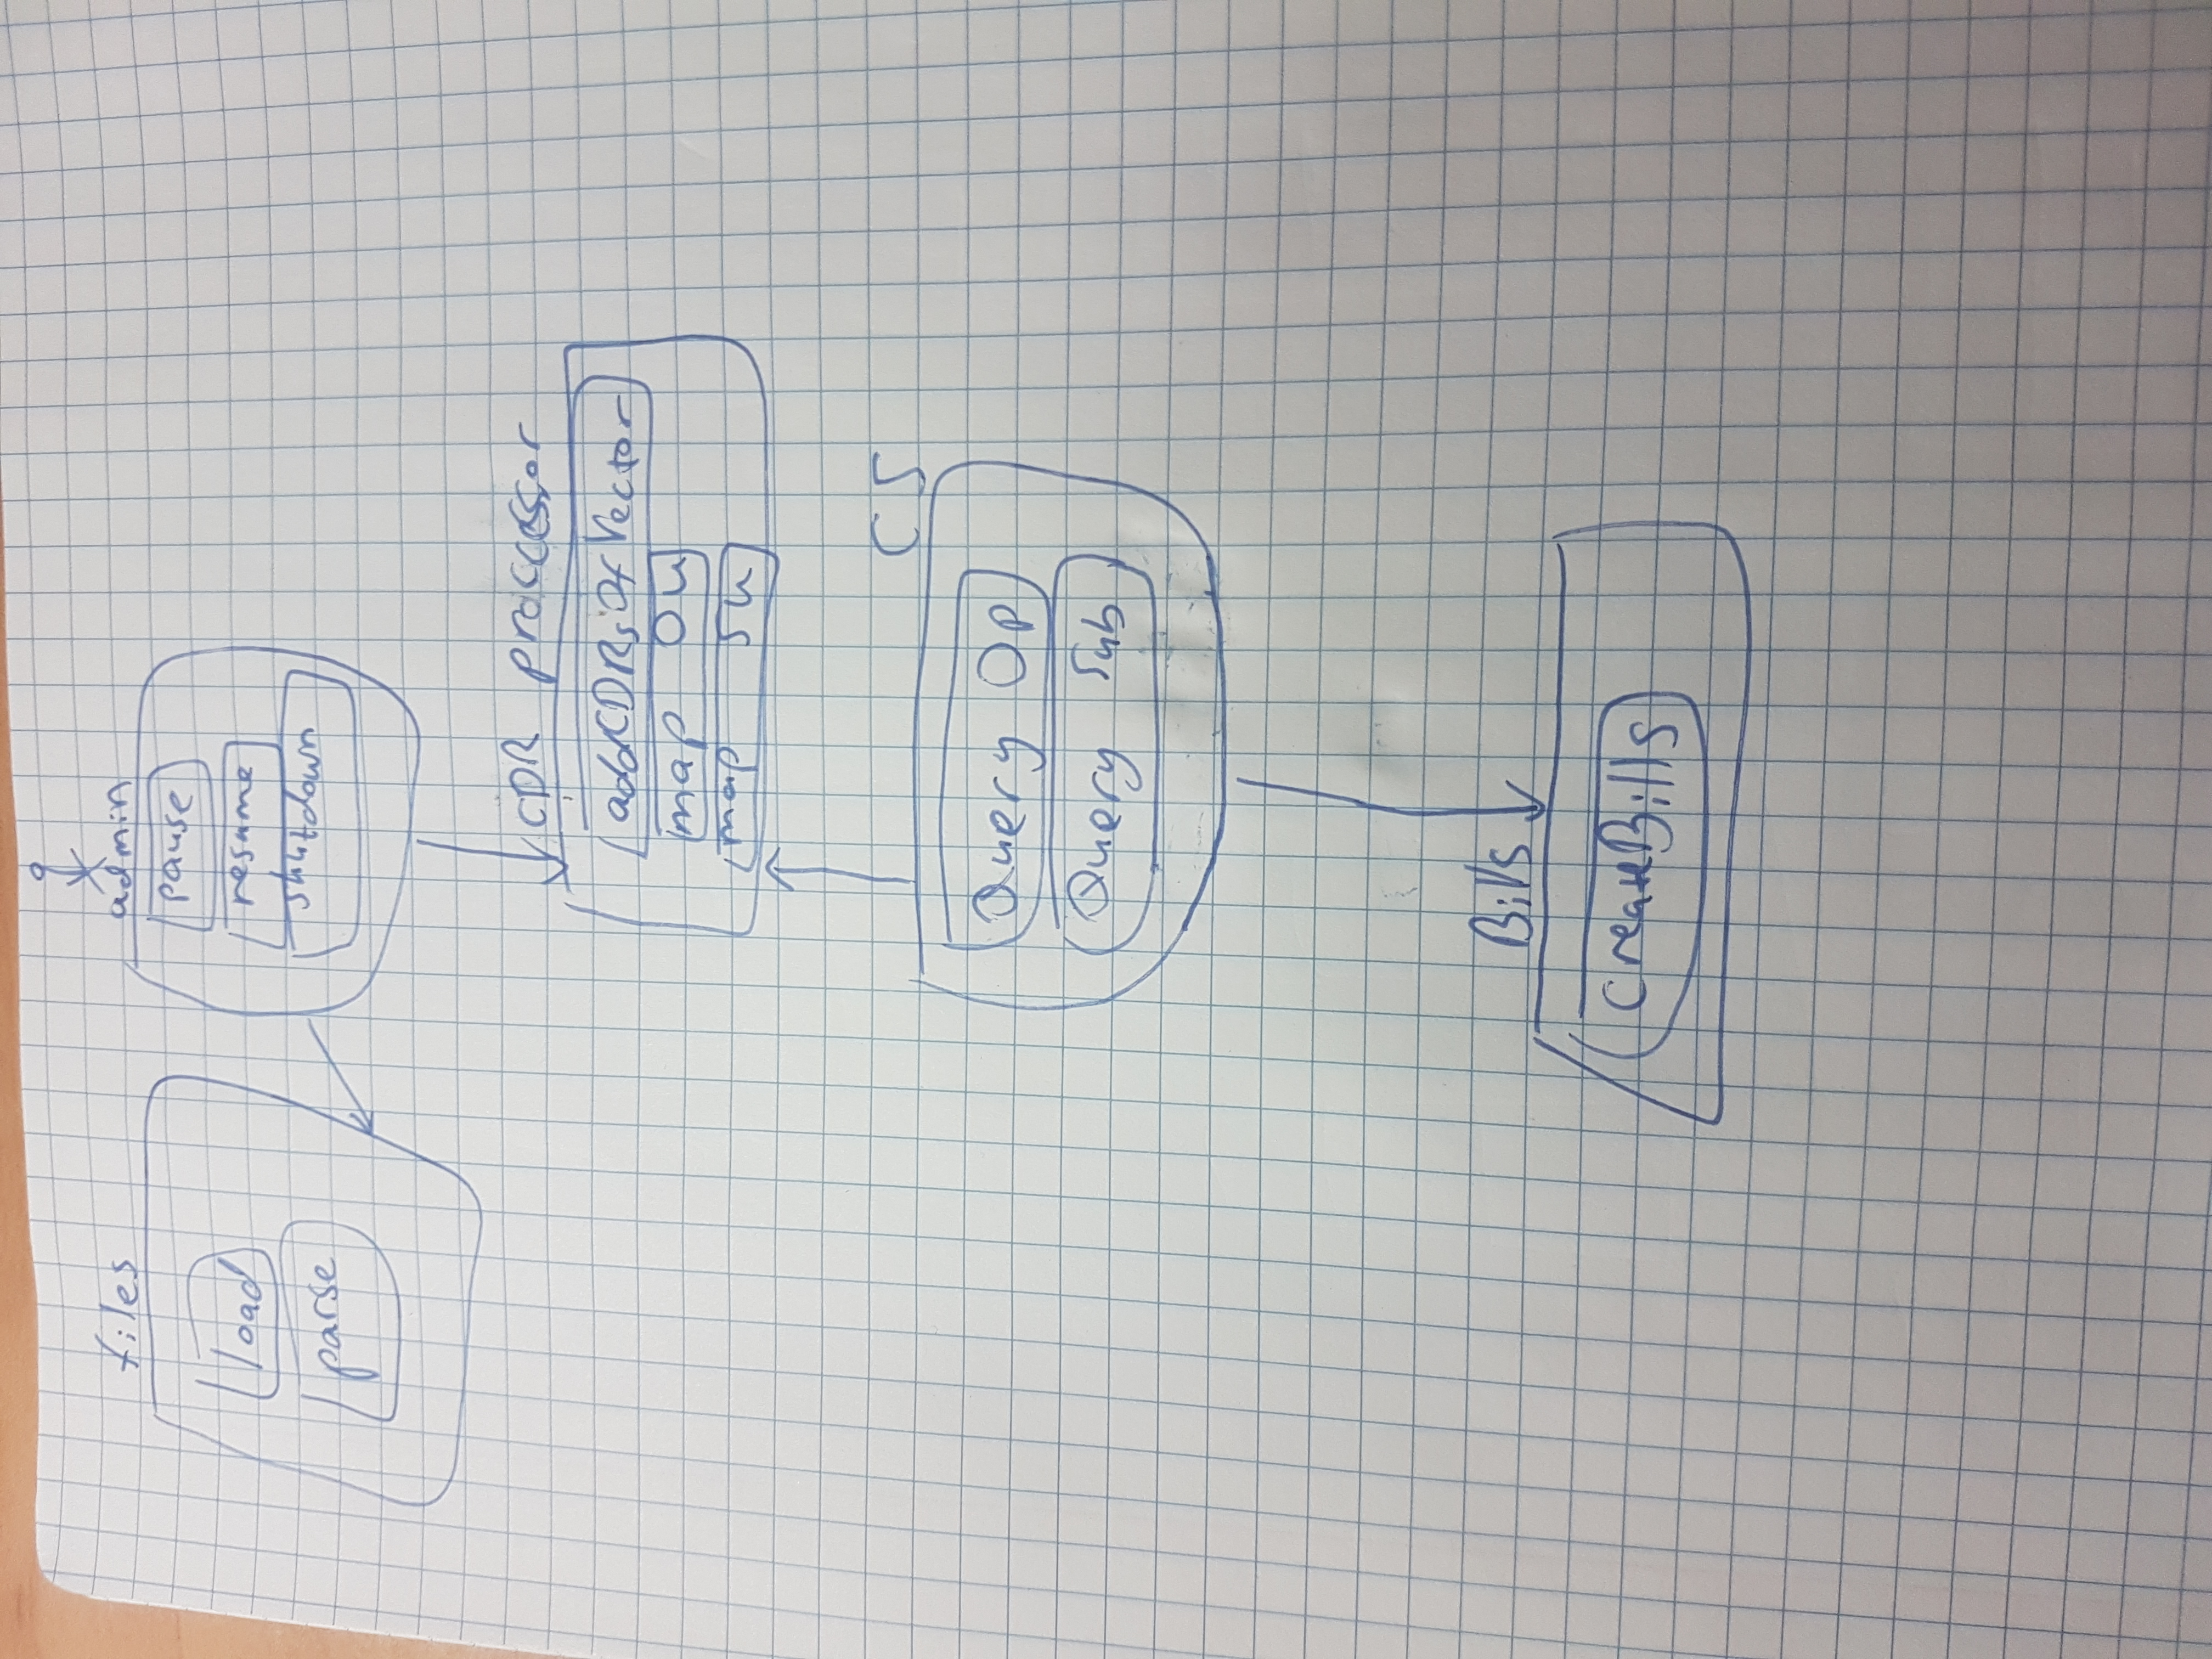 files
load
parse
admin
pause
resume
shutdown
CDR proccessor
addCDRsOfVector
map Ou
map Su
CS
Query Op
Query Sub
Bills
CreateBills